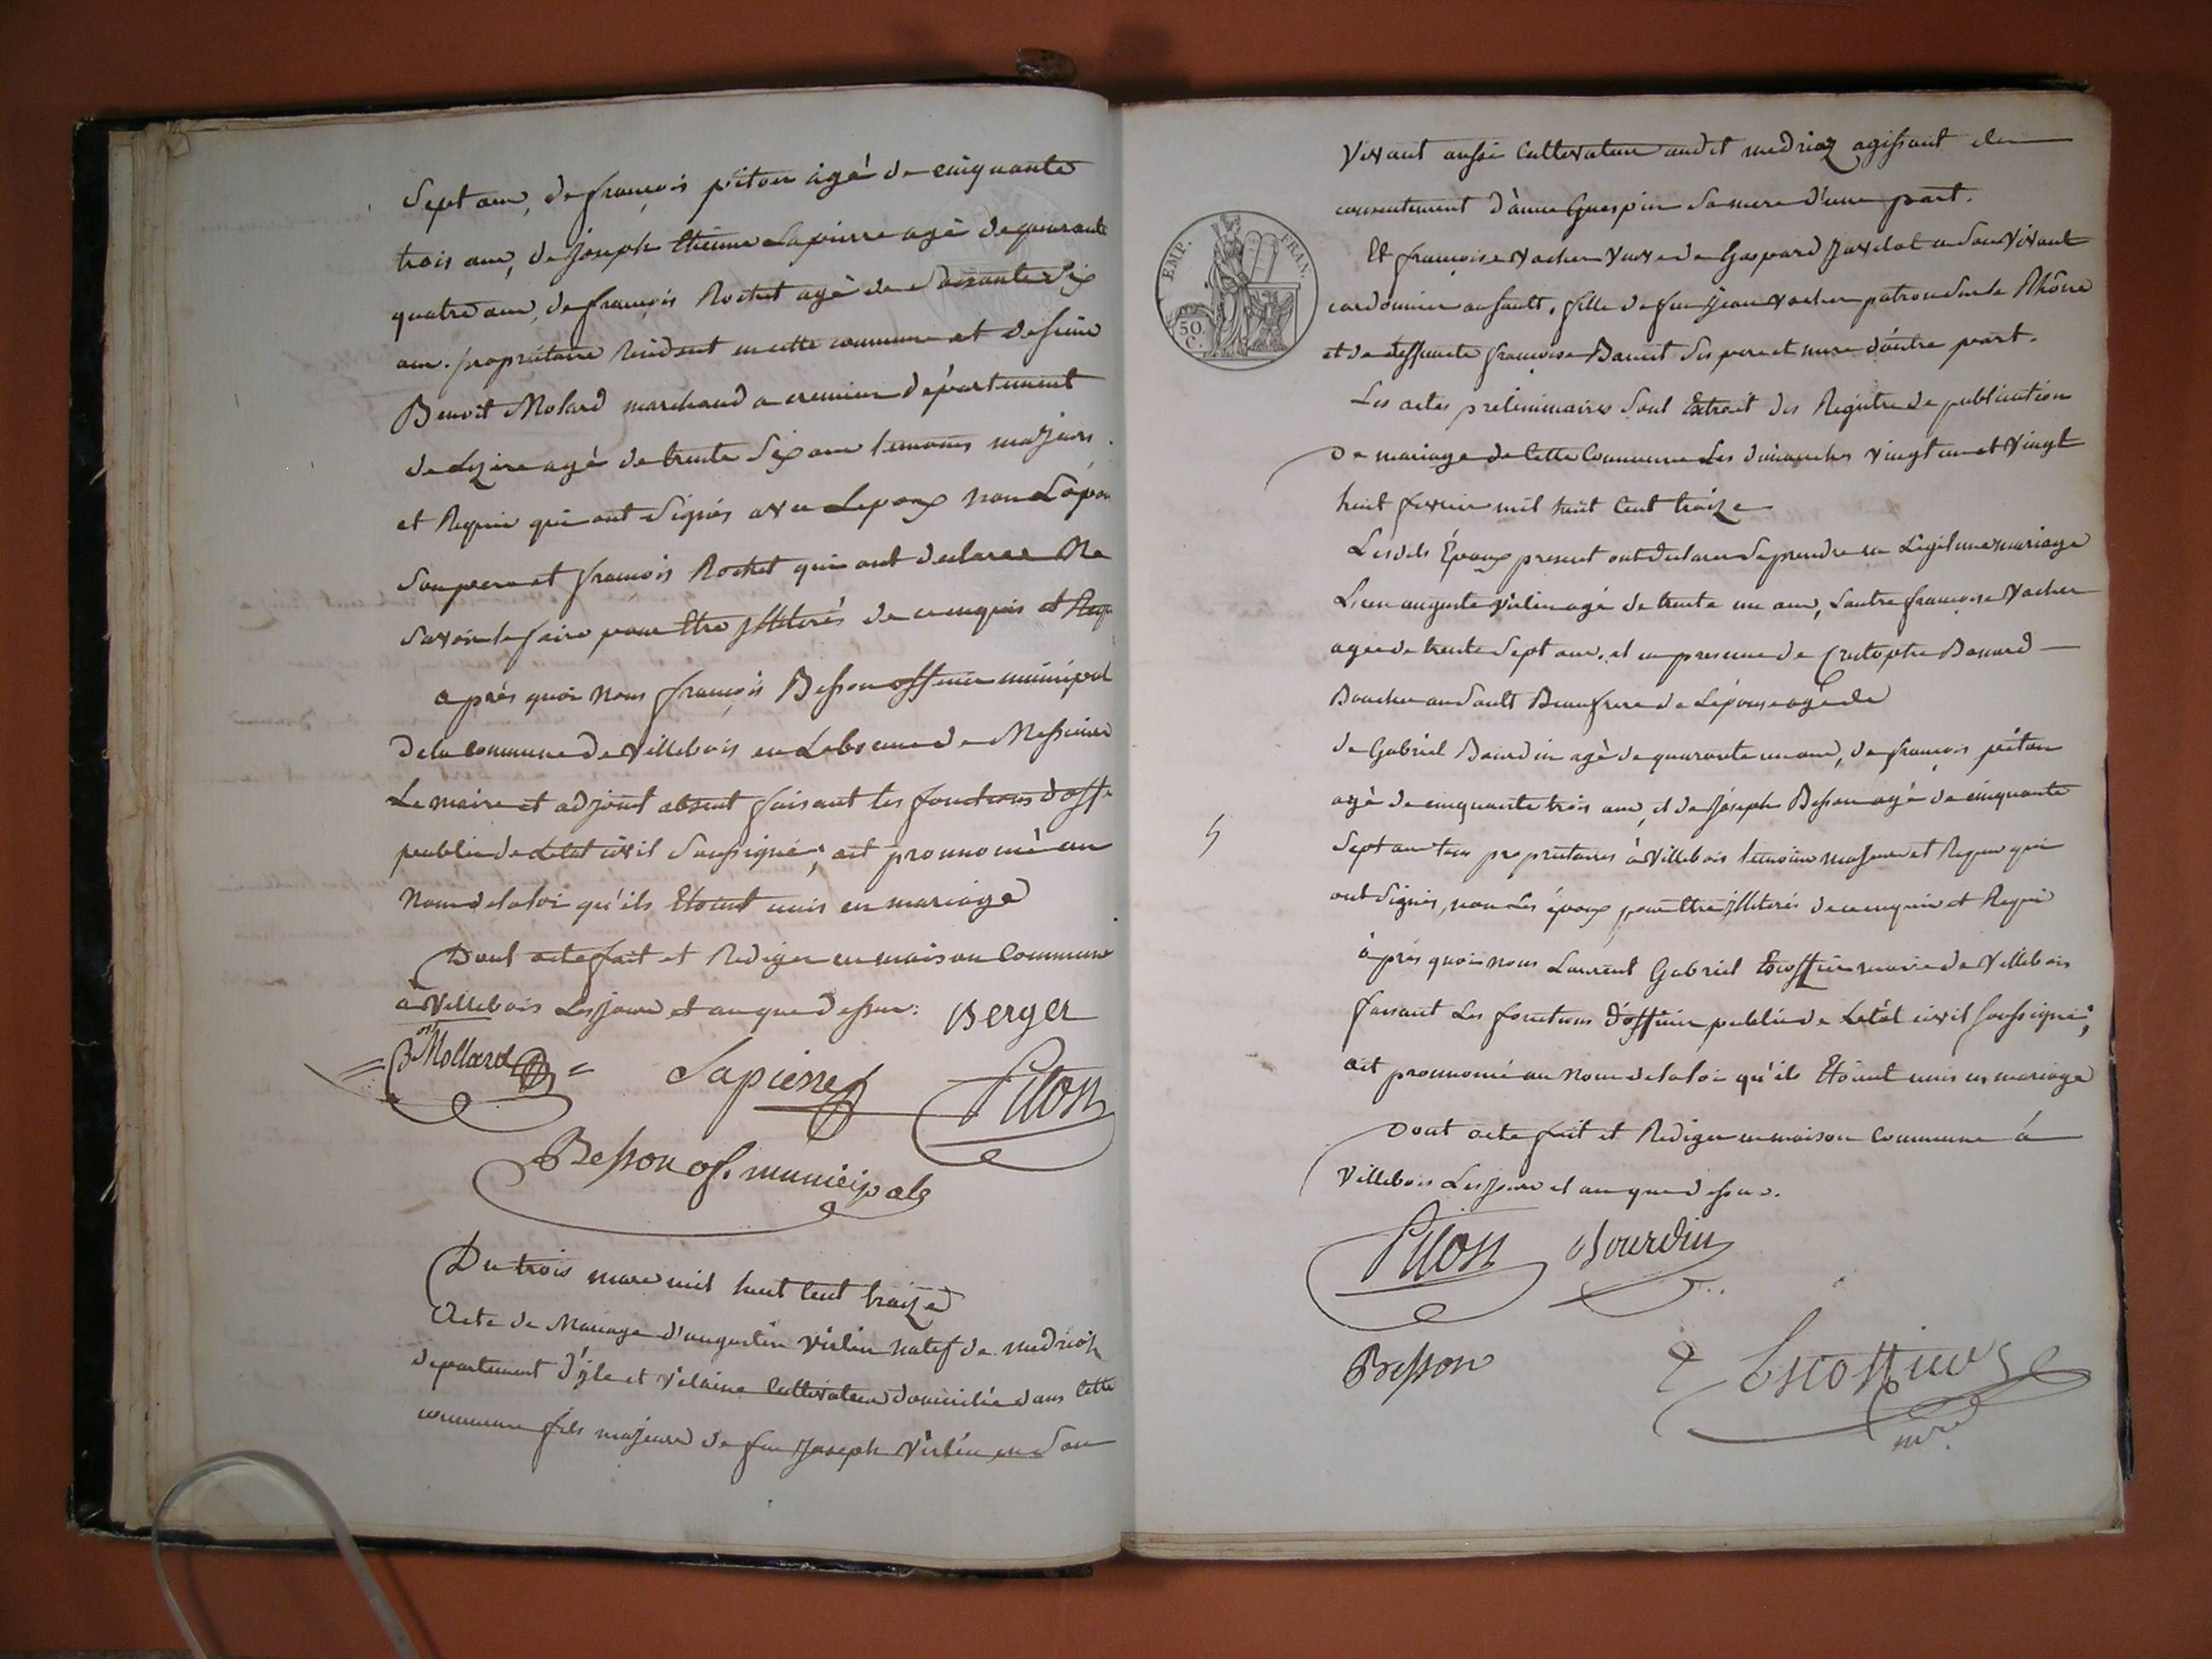 Sept ans, de françois piton agé de cinquante
trois ans, de Joseph Etienne Lapierre agé de quarante
quatre ans, de françois Rochet agé de soixante dix
ans. propriétaire Résident en cette commune et de sieur
Benoit Molard marchand a cremieu département
de Lizere agé de trente six ans temoins majeurs
et Requis qui ont signés avec Lepoux non Lépou
son pere et françois Rochet qui ont declarer Ne
savoir le faire pour Etre jlliterés de ce enquis et Requ
après quoi Nous françois Besson officier municipal
de la commune de Villebois en Labsence de Messieurs
Le maire et adjoint absent faisant les fonctions d'offi
public de Letat civil soussigné; ait pronnoncé au
Nom de la loi qu'ils Etoint unis en mariage
Dont acte fait et Rediger en maison Commune
à Villebois Les jour et an que dessus: Berger
Boit Mollard Lapierre Piton
Besson of. municipale
Du trois mars mil huit Cent traize
Acte de Mariage d'augustin Virlin natif de medriak
departement d'jle et vilaine Cultivateur domicilié dans Cette
commune fils majeure de feu Joseph Virlin en son
Vivant aussi Cultivateur audit medriaz agissant du
consentement d'anne Guespin sa mere d'une part.
EMP. FRAN.
50. C.
Et françoise Vacher Veuve de Gaspard Javelot en son Vivant
cordonnier au sault, fille de feu Jean Vacher patron sur le Rhône
et de deffuncte françoise Banet ses pere et mere d'autre part.
Les actes preliminaires sont Extrait des Registre de publication
de mariage de Cette Commune Les dimanches Vingt un et Vingt
huit fevrier mil huit Cent traize
Lesdits Époux present ont declarer se prendre en Legitime mariage
L'un auguste Virlin agé de trente un ans, Lautre françoise Vacher
agee de trente Sept ans, et en presence de Cristophe Bonnard
Boucher au sault Beaufrere de Lépouse agé de
de Gabriel Bourdin agé de quarante un ans, de françois piton
agé de cinquante trois ans, et de Joseph Besson agé de cinquante
Sept ans tous propriétaires à Villebois temoins majeurs et Requis qui
ont signés, non Les époux pour Etre jlliterés de ce enquis et Requi
après quoi nous Laurent Gabriel Escoffier maire de Villebois
faisant Les fonctions d'officier public de Letât civil soussigné;
ait pronnoncé au Nom de la loi qu'ils Etoint unis en mariage
Dont acte fait et Rediger en maison Commune à
Villebois Les jour et an que dessus.
Piton Bourdin
Besson Escoffier
mre